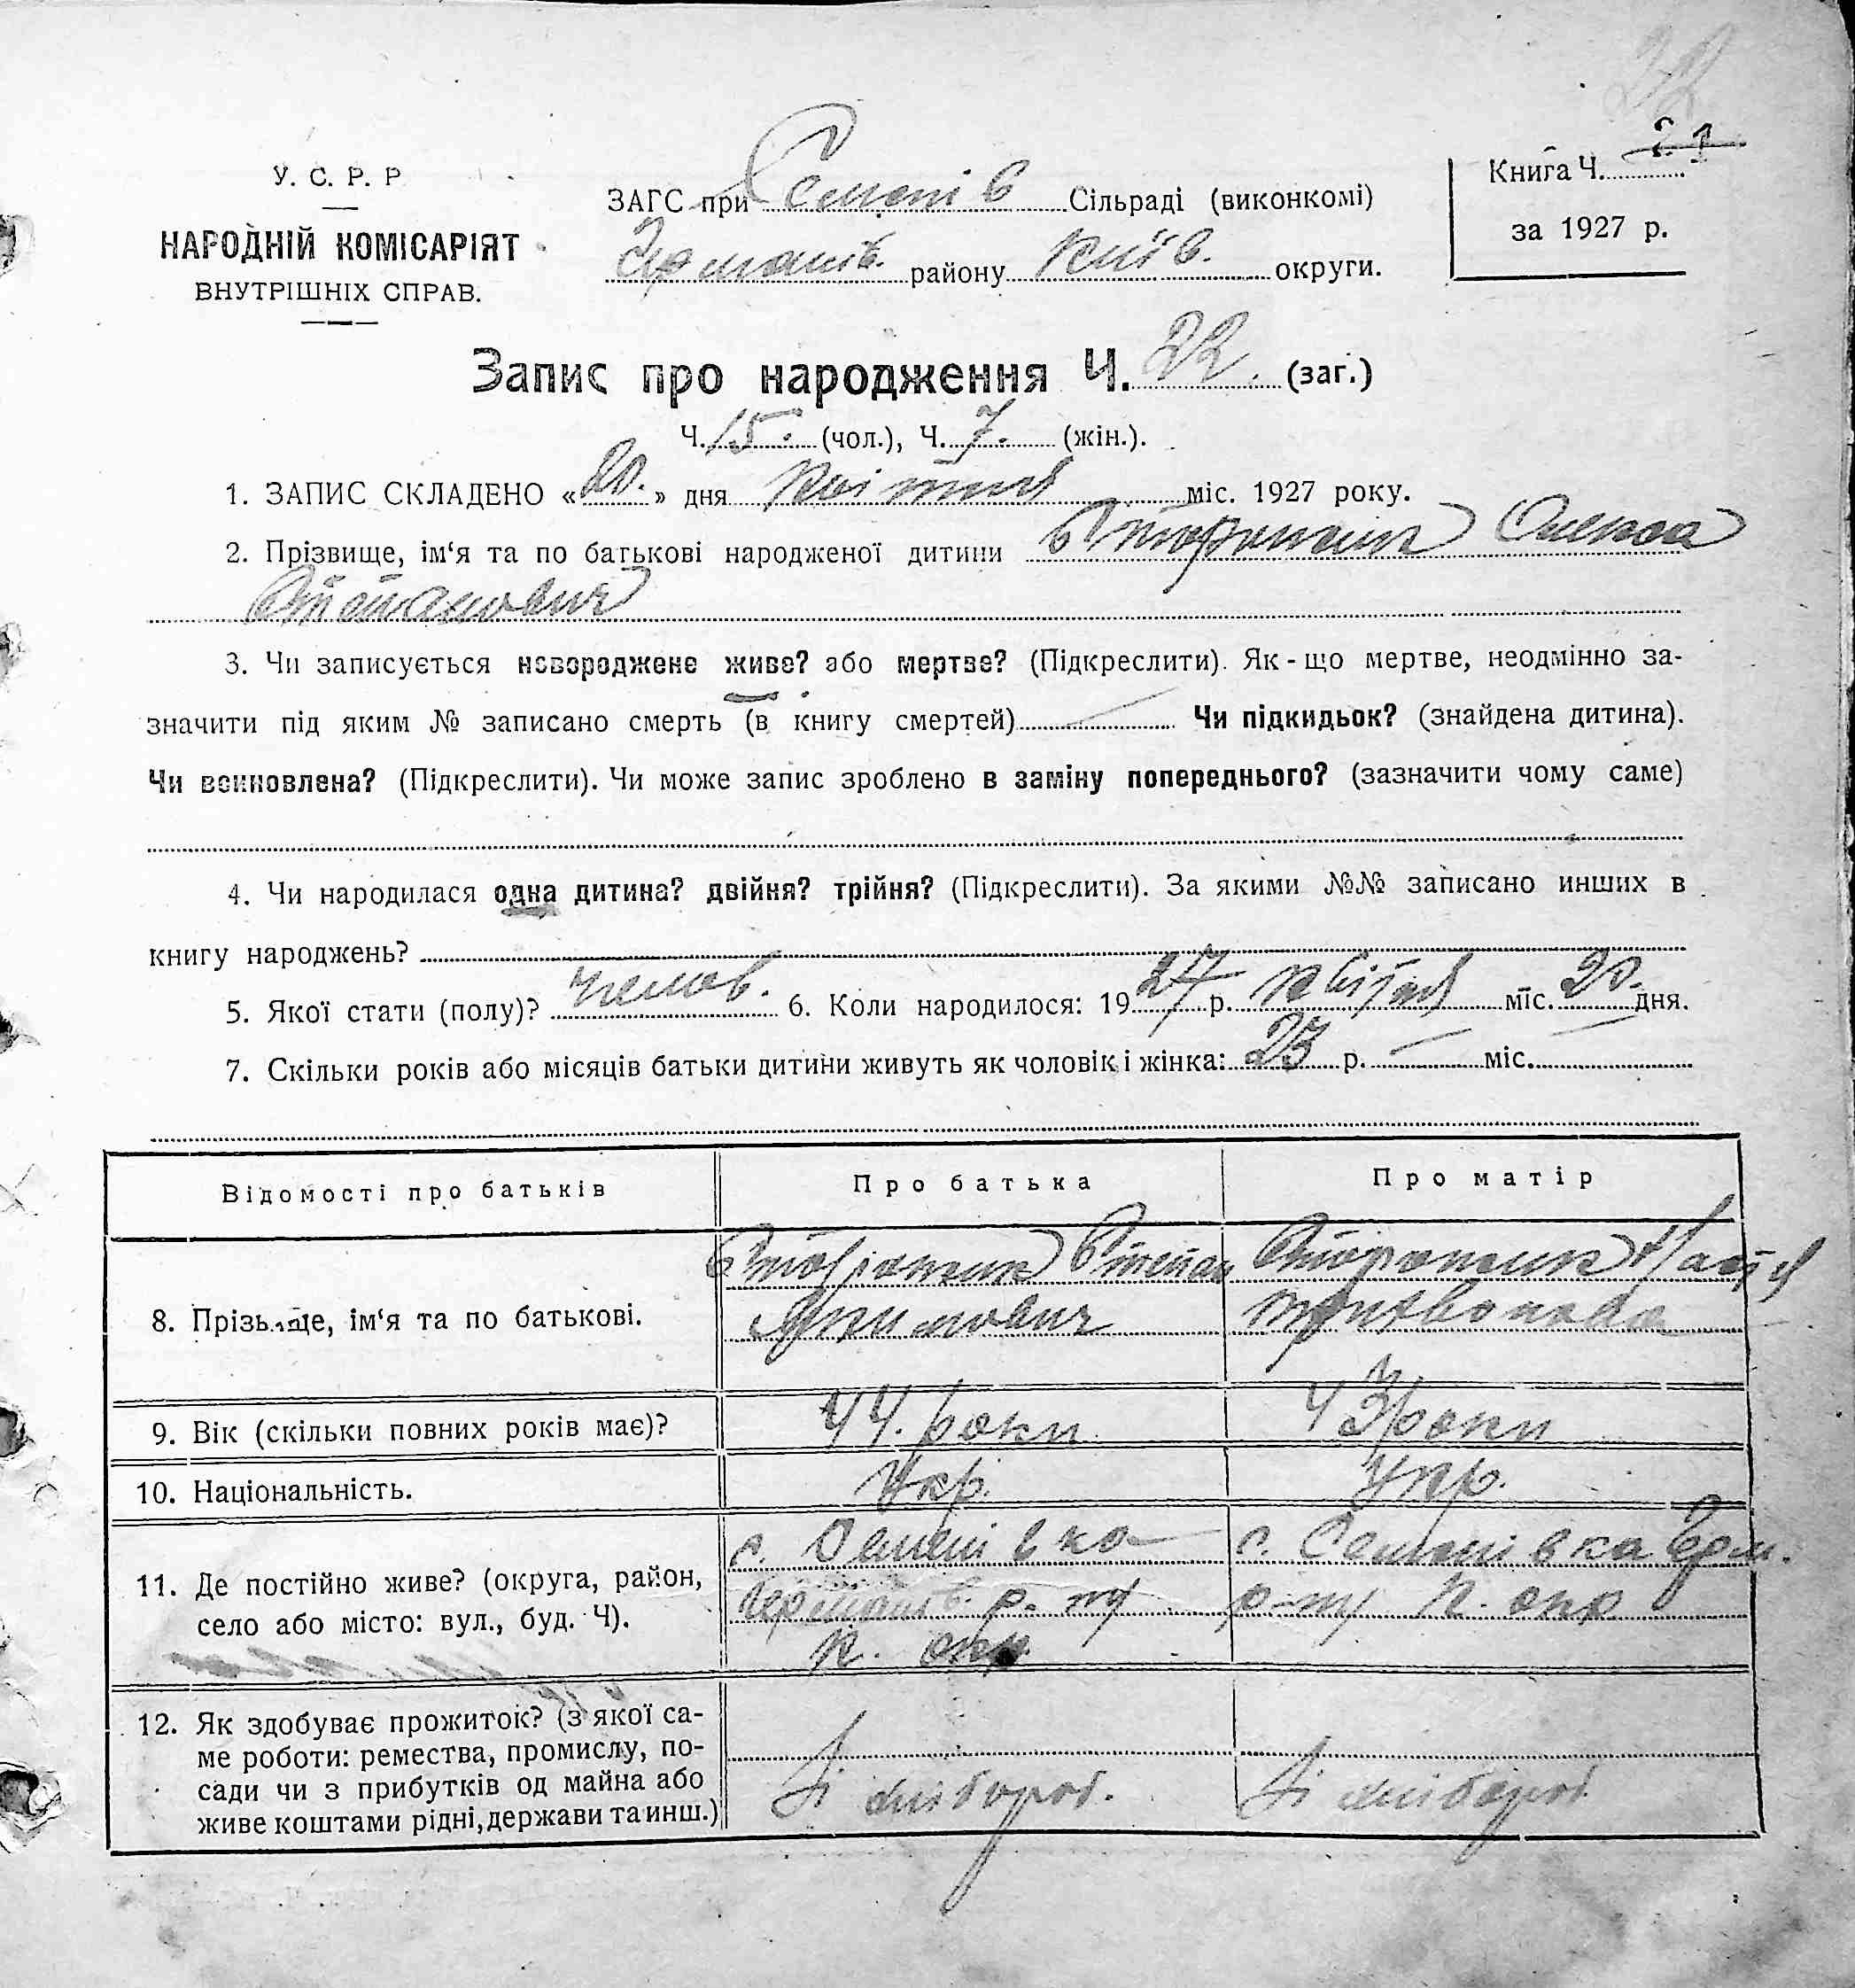 22
У. С. Р. Р
НАРОДНІЙ КОМІСАРІЯТ
ВНУТРІШНІХ СПРАВ.
ЗАГС при Семенів Сільраді (виконкомі)
Германів. району Київ. округи.
Книга Ч. 21
за 1927 р.
Запис про народження Ч. 22. (заг.)
Ч. 15. (чол.), Ч. 7. (жін.).
1. ЗАПИС СКЛАДЕНО «20.» дня квітня міс. 1927 року.
2. Прізвище, ім‘я та по батькові народженої дитини Сторожик Олекса
Степанович
3. Чи записується новороджене живе? або мертве? (Підкреслити). Як - що мертве, неодмінно за-
значити під яким № записано смерть (в книгу смертей) Чи підкидьок? (знайдена дитина).
Чи всиновлена? (Підкреслити). Чи може запис зроблено в заміну попереднього? (зазначити чому саме)
4. Чи народилася одна дитина? двійня? трійня? (Підкреслити). За якими №№ записано инших в
книгу народжень?
5. Якої стати (полу)? челов. 6. Коли народилося: 1927 р. квітня міс. 20. дня.
7. Скільки років або місяців батьки дитини живуть як чоловік і жінка: 23 р. — міс.
Відомості про батьків Про батька Про матір
8. Прізвище, ім‘я та по батькові. Сторожик Степан Якимович Сторожик Настя
9. Вік (скільки повних років має)? 44. роки 43 роки
10. Національність. Укр. Укр.
11. Де постійно живе? (округа, район,
село або місто: вул., буд. Ч).
с. Семенівка
Германів. р-ну
К. окр.
с. Семенівка Герм.
р-ну К. окр
12. Як здобуває прожиток? (з якої са-
ме роботи: ремества, промислу, по-
сади чи з прибутків од майна або
живе коштами рідні, держави та инш.)
Зі хлібороб. Зі хлібороб.